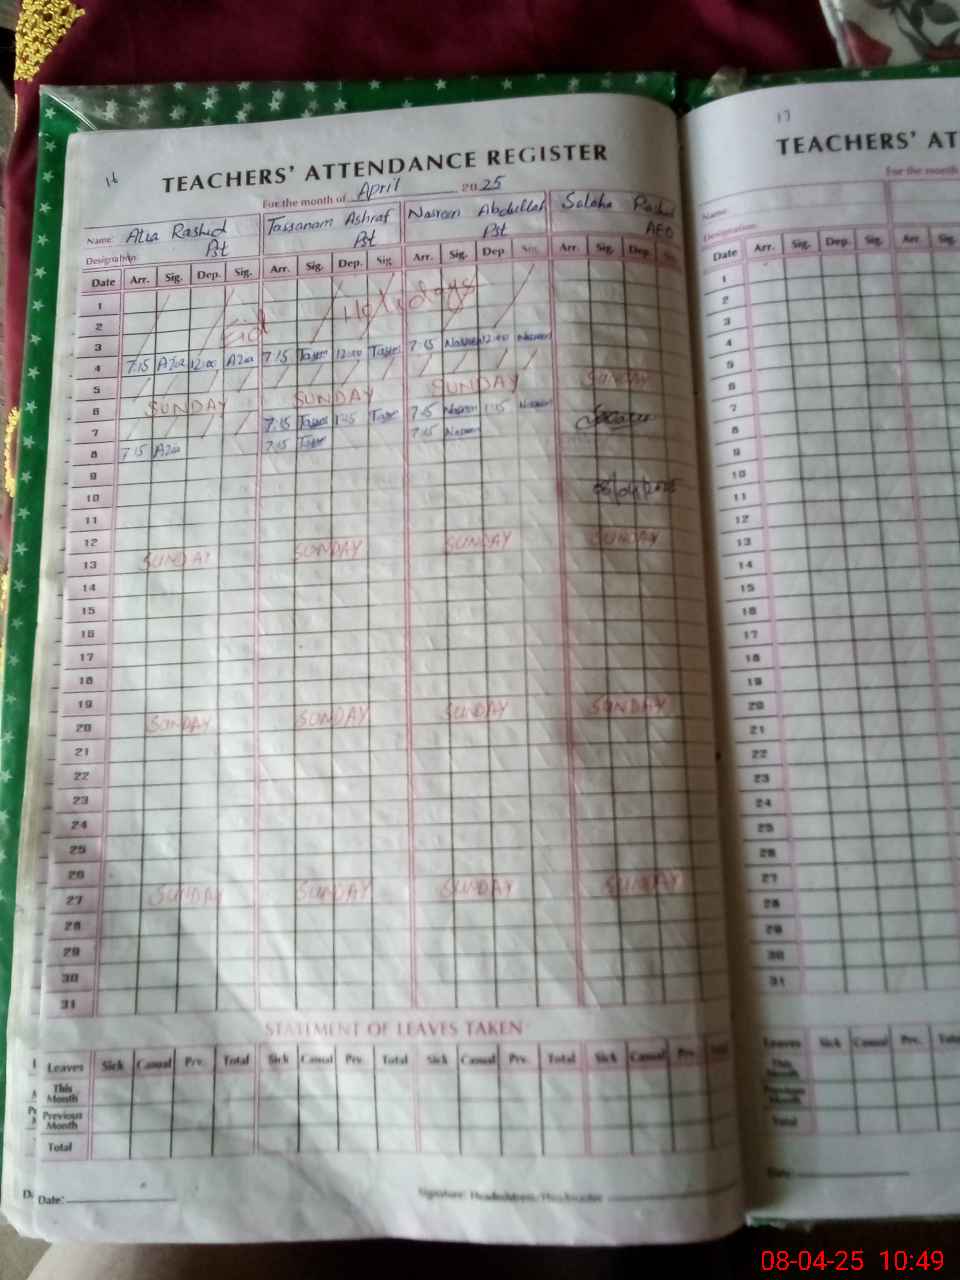 16
TEACHERS' ATTENDANCE REGISTER
For the month of April 2025
Name: Atia Rashid Tassanam Ashraf Nasreen Abdullah Saleha Rashid
Designation: Pst Pst Pst AEO
Date Arr. Sig. Dep. Sig. Arr. Sig. Dep. Sig. Arr. Sig. Dep. Sig. Arr. Sig. Dep. Sig.
1
2 Eid Holidays
3
4 7:15 Azia 12:00 Azia 7:15 12:00 7:15 Nasreen 12:00 Nasreen
5
6 SUNDAY SUNDAY SUNDAY SUNDAY
7 7:15 1:15 7:15 Nasreen 1:15 Nasreen
8 7:15 Azia 7:15 7:15 Nasreen
9
10 08/04/2025
11
12
13 SUNDAY SUNDAY SUNDAY SUNDAY
14
15
16
17
18
19
20 SUNDAY SUNDAY SUNDAY SUNDAY
21
22
23
24
25
26
27 SUNDAY SUNDAY SUNDAY SUNDAY
28
29
30
31
STATEMENT OF LEAVES TAKEN
Leaves Sick Casual Prv. Total Sick Casual Prv. Total Sick Casual Prv. Total Sick Casual Prv. Total
This Month
Previous Month
Total
Date:
Signature: Headmistress/Headmaster
17
TEACHERS' AT
For the month
Name:
Designation:
Date Arr. Sig. Dep. Sig. Arr. Sig.
1
2
3
4
5
6
7
8
9
10
11
12
13
14
15
16
17
18
19
20
21
22
23
24
25
26
27
28
29
30
31
Leaves Sick Casual Prv. Total
This Month
Previous Month
Total
Date:
08-04-25 10:49